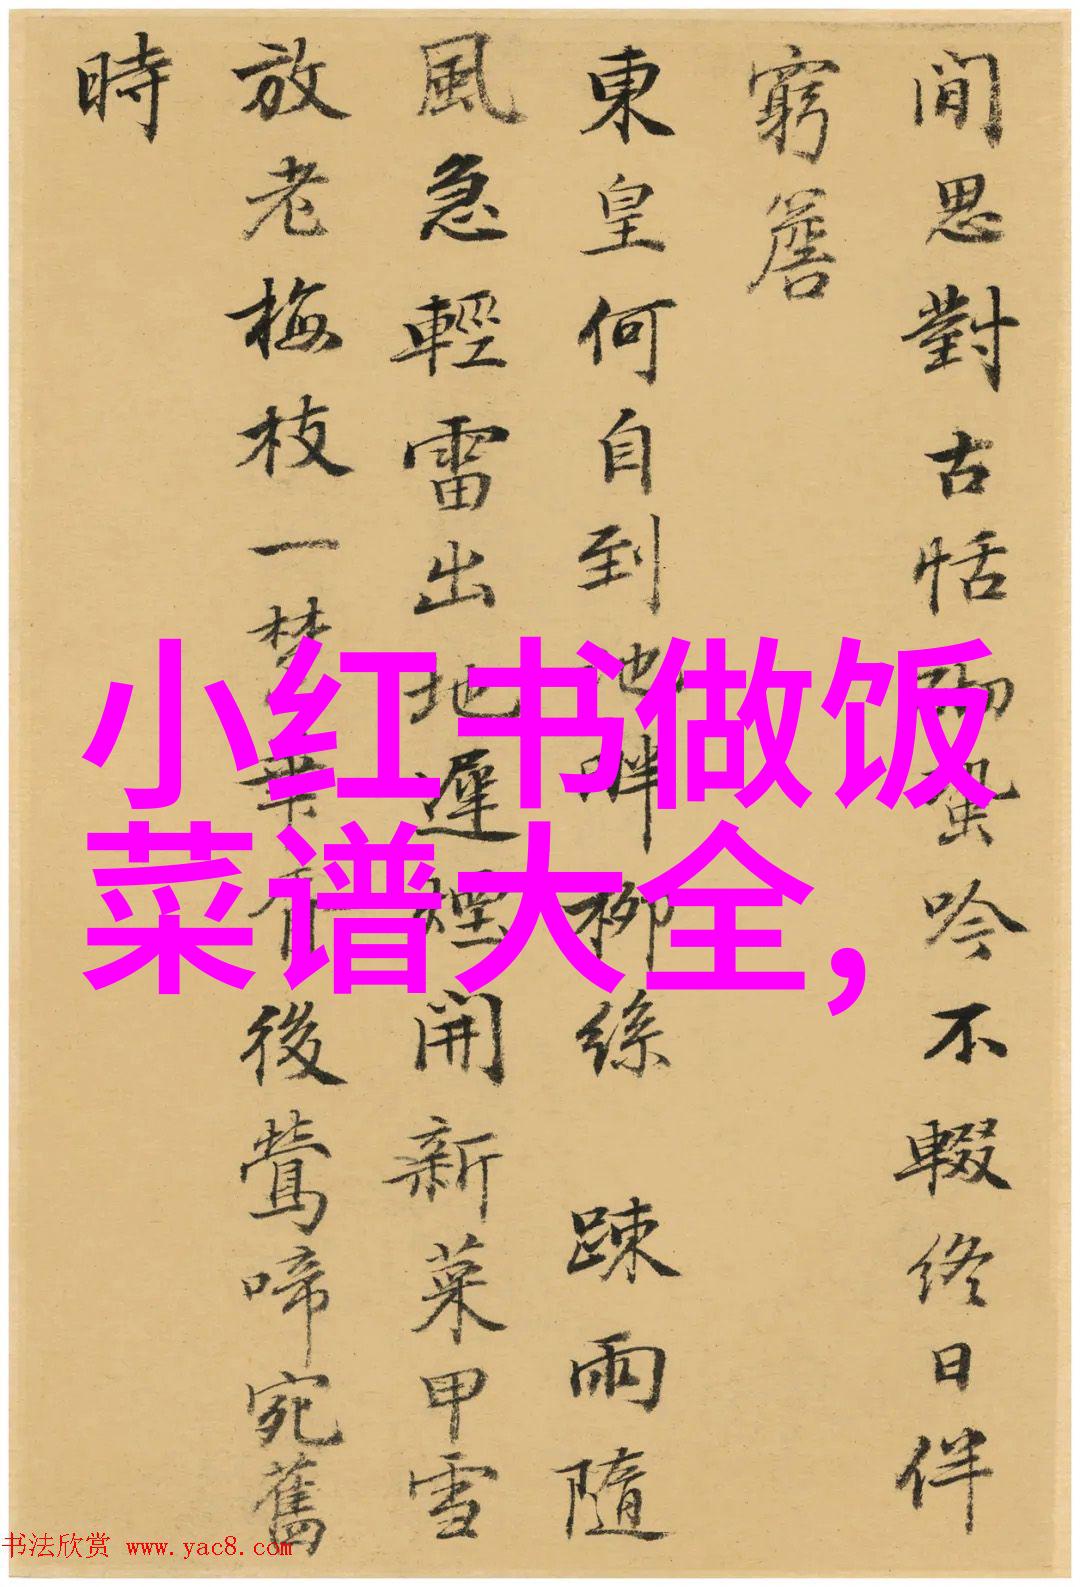 間思對古恬砌蛩吟不輟終日伴
窮簷
東皇何自到池畔柳絲踈雨隨
風急輕雷出地遲煙開新菜甲雪
放老梅枝一梦香後鶯啼宛舊
時
小红书做饭
菜谱大全,
书法欣赏 www.yac8.com